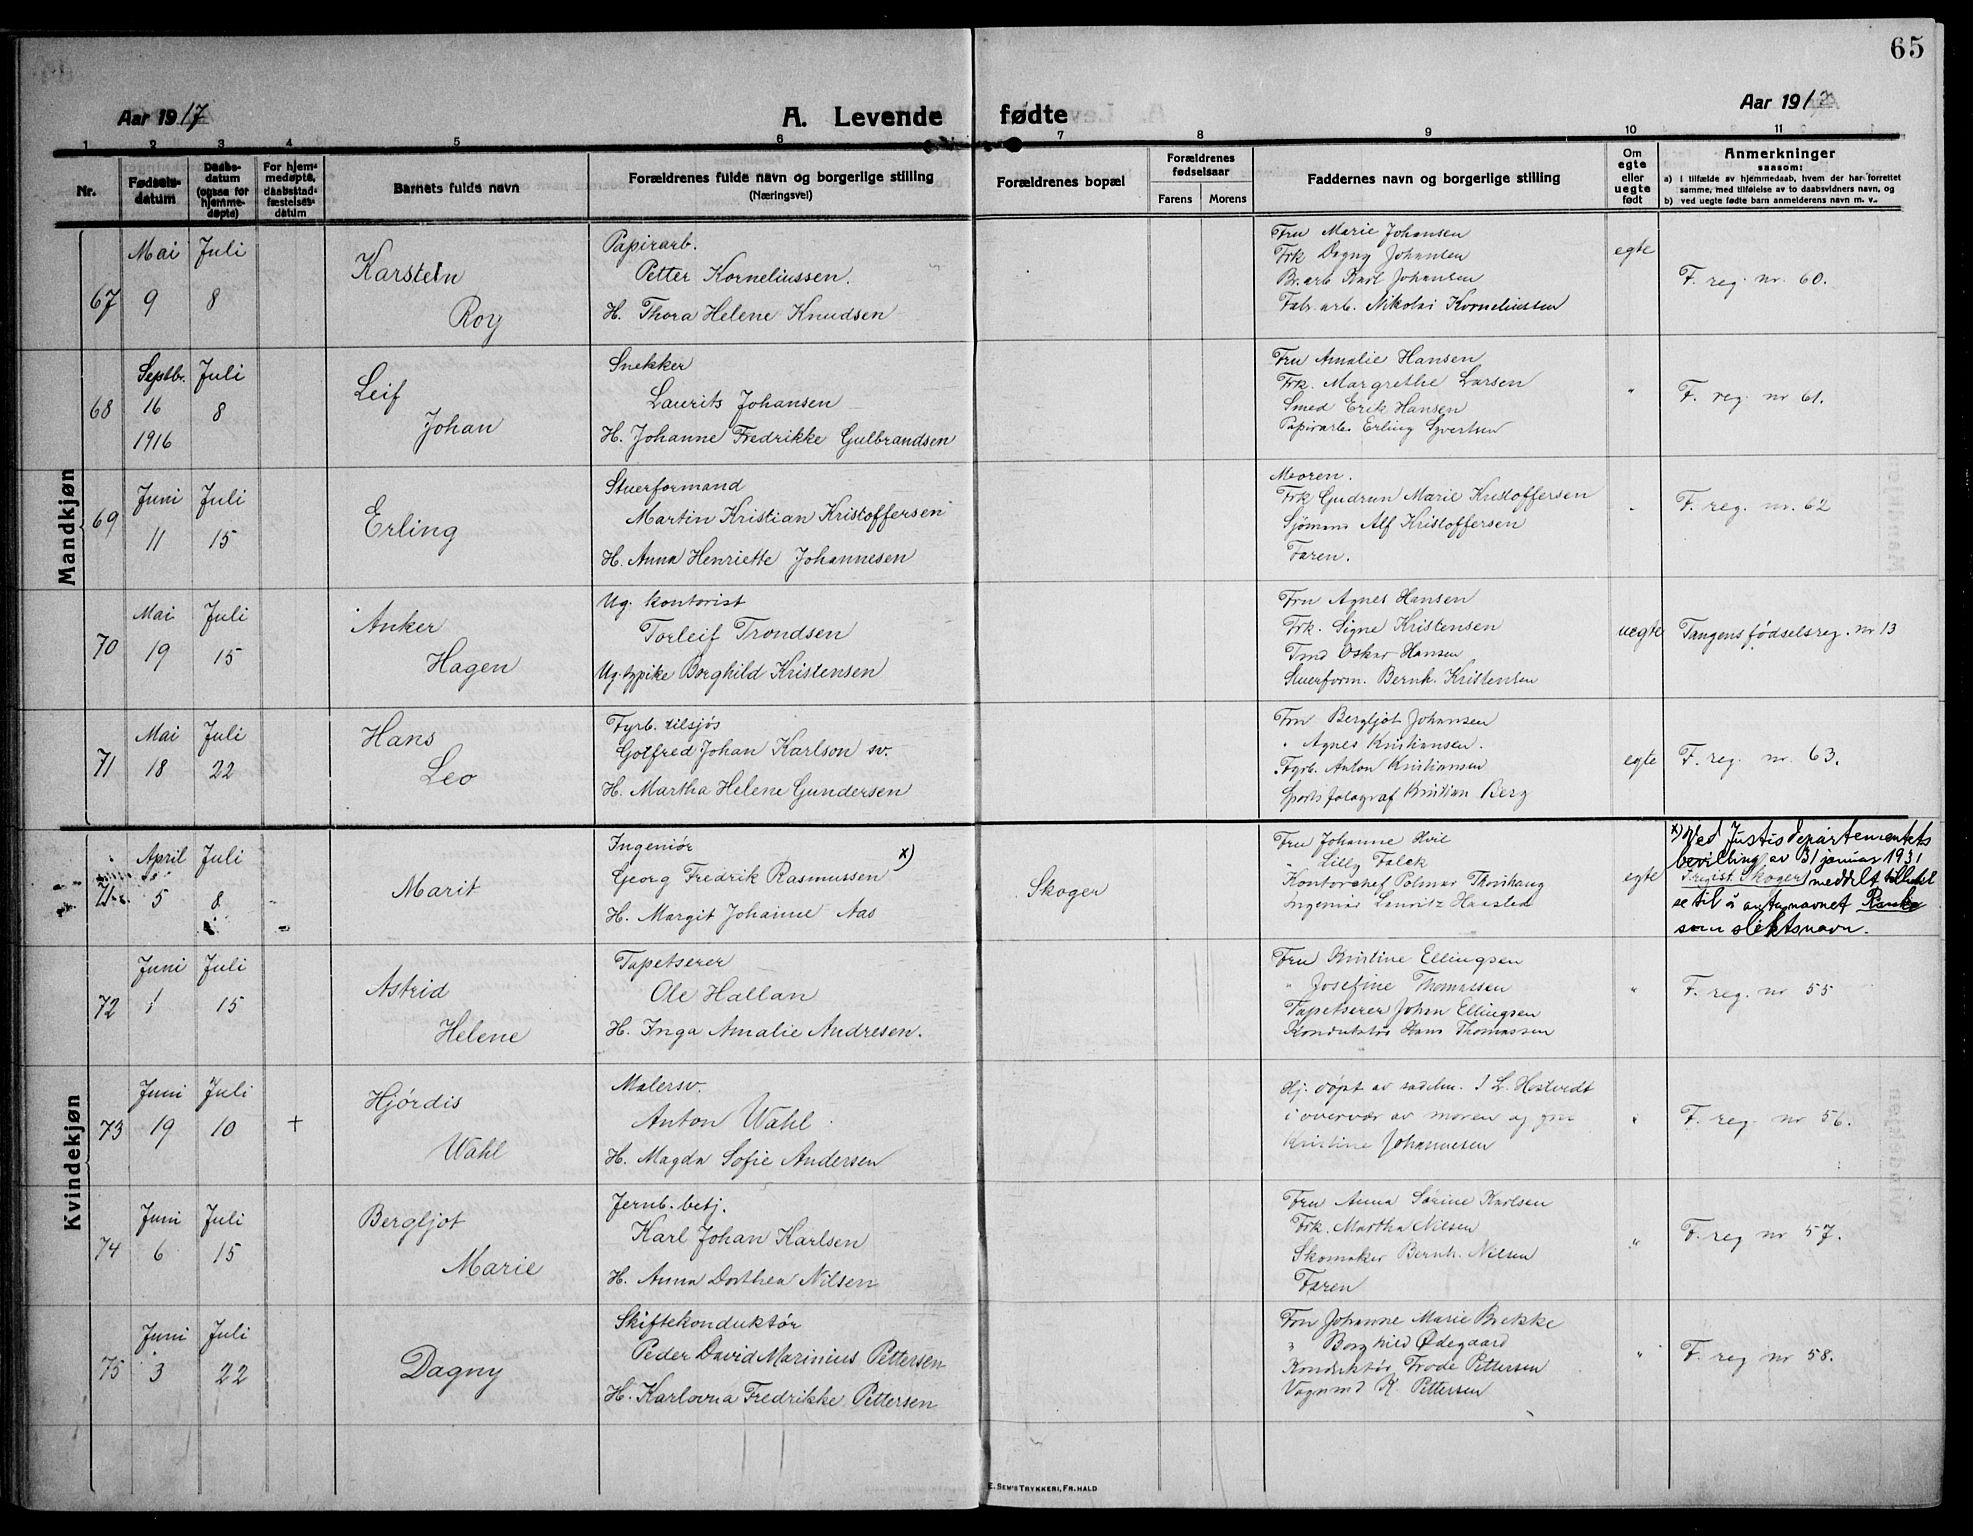 65
Aar 1917
A. Levende fødte
Aar 1917
1 2 3 4 5 6 7 8 9 10 11
Nr.
Fødsels-
datum
Daabs-
datum
(ogsaa for
hjemme-
døpte)
For hjem-
medøpte,
daabsstad-
fæstelses-
datum
Barnets fulde navn
Forældrenes fulde navn og borgerlige stilling
(Næringsvei)
Forældrenes bopæl
Forældrenes
fødselsaar
Farens Morens
Faddernes navn og borgerlige stilling
Om
egte
eller
uegte
født
Anmerkninger
saasom:
a) i tilfælde av hjemmedaab, hvem der har forrettet
samme, med tilføielse av to daabsvidners navn, og
b) ved uegte fødte barn anmelderens navn m. v.
Mandkjøn
67
Mai
9
Juli
8
Karstein
Roy
Papirarb.
Petter Korneliussen.
H. Thora Helene Knudsen
Fru Marie Johansen
Frk Dagny Johansen
Br.arb Karl Johansen
Fabr.arb. Nikolai Korneliussen
egte
F. reg. nr. 60.
68
Septbr.
16
1916
Juli
8
Leif
Johan
Snekker
Laurits Johansen
H. Johanne Fredrikke Gulbrandsen
Fru Amalie Hansen
Frk. Margrethe Larsen
Smed Erik Hansen
Papirarb. Erling Syvertsen
"
F. reg. nr 61.
69
Juni
11
Juli
15
Erling
Stuerformand
Martin Kristian Kristoffersen
H. Anna Henriette Johannesen
Mooren.
Frk Gudrun Marie Kristoffersen
Sjømann Alf Kristoffersen
Faren.
"
F. reg. nr. 62
70
Mai
19
Juli
15
Anker
Hagen
Ug. kontorist
Torleif Trondsen
Ug. typike Borghild Kristensen
Fru Agnes Hansen
Frk. Signe Kristensen
Tmd Oskar Hansen
Stuerform. Bernh. Kristensen
uegte
Tangens fødselsreg. nr 13
71
Mai
18
Juli
22
Hans
Leo
Fyrb. tilsjøs
Gotfred Johan Karlson sv.
H. Martha Helene Gundersen
Fru Bergljot Johansen
" Agnes Kristiansen.
Fyrb. Anton Kristiansen
Sportsfotograf Kristian Berg
egte
F. reg. nr. 63.
Kvindekjøn
71
April
5
Juli
8
Marit
Ingeniør
Georg Fredrik Rasmussen x)
H. Margit Johanne Aas
Skoger
Fru Johanne Hvil
" Lilly Falck
Kontorchef
Ingeniør Lauritz Haasted
egte
x) Ved Justisdepartementets
bevilling av 31 januar 1931
(regist. Skoger) meddelt tillatel
se til å anta navnet
som slektsnavn.
72
Juni
1
Juli
15
Astrid
Helene
Tapetserer
Ole Hallan
H. Inga Amalie Andresen.
Fru Kristine Ellingsen
" Josefine Thomassen
Tapetserer Johan Ellingsen
Konduktør Hans Thomassen
"
F. reg. nr 55
73
Juni
19
Juli
10
+
Hjørdis
Wahl
Malersv.
Anton Wahl
H. Magda Sofie Andersen
Hj. døpt av sadelm. J L. Hestvedt
i overvær av moren og fru
Kristine Johannesen
"
F. reg. nr 56.
74
Juni
6
Juli
15
Bergljot
Marie
Jernb. betj.
Karl Johan Karlsen
H. Anna Dorthea Nilsen
Fru Anna Sørine Karlsen
Frk. Martha Nilsen
Skomaker Bernh. Nilsen
Faren
"
F. reg nr 57.
75
Juni
3
Juli
22
Dagny
Skiftekonduktør
Peder David Marinius Pettersen
H. Karlovna Fredrikke Pettersen
Fru Johanne Marie Brekke
" Borghild Ødegaard
Konduktør Frode Pettersen
Vognmd K. Pettersen
"
F. reg nr 58.
E. SEM'S TRYKKERI, FR.HALD